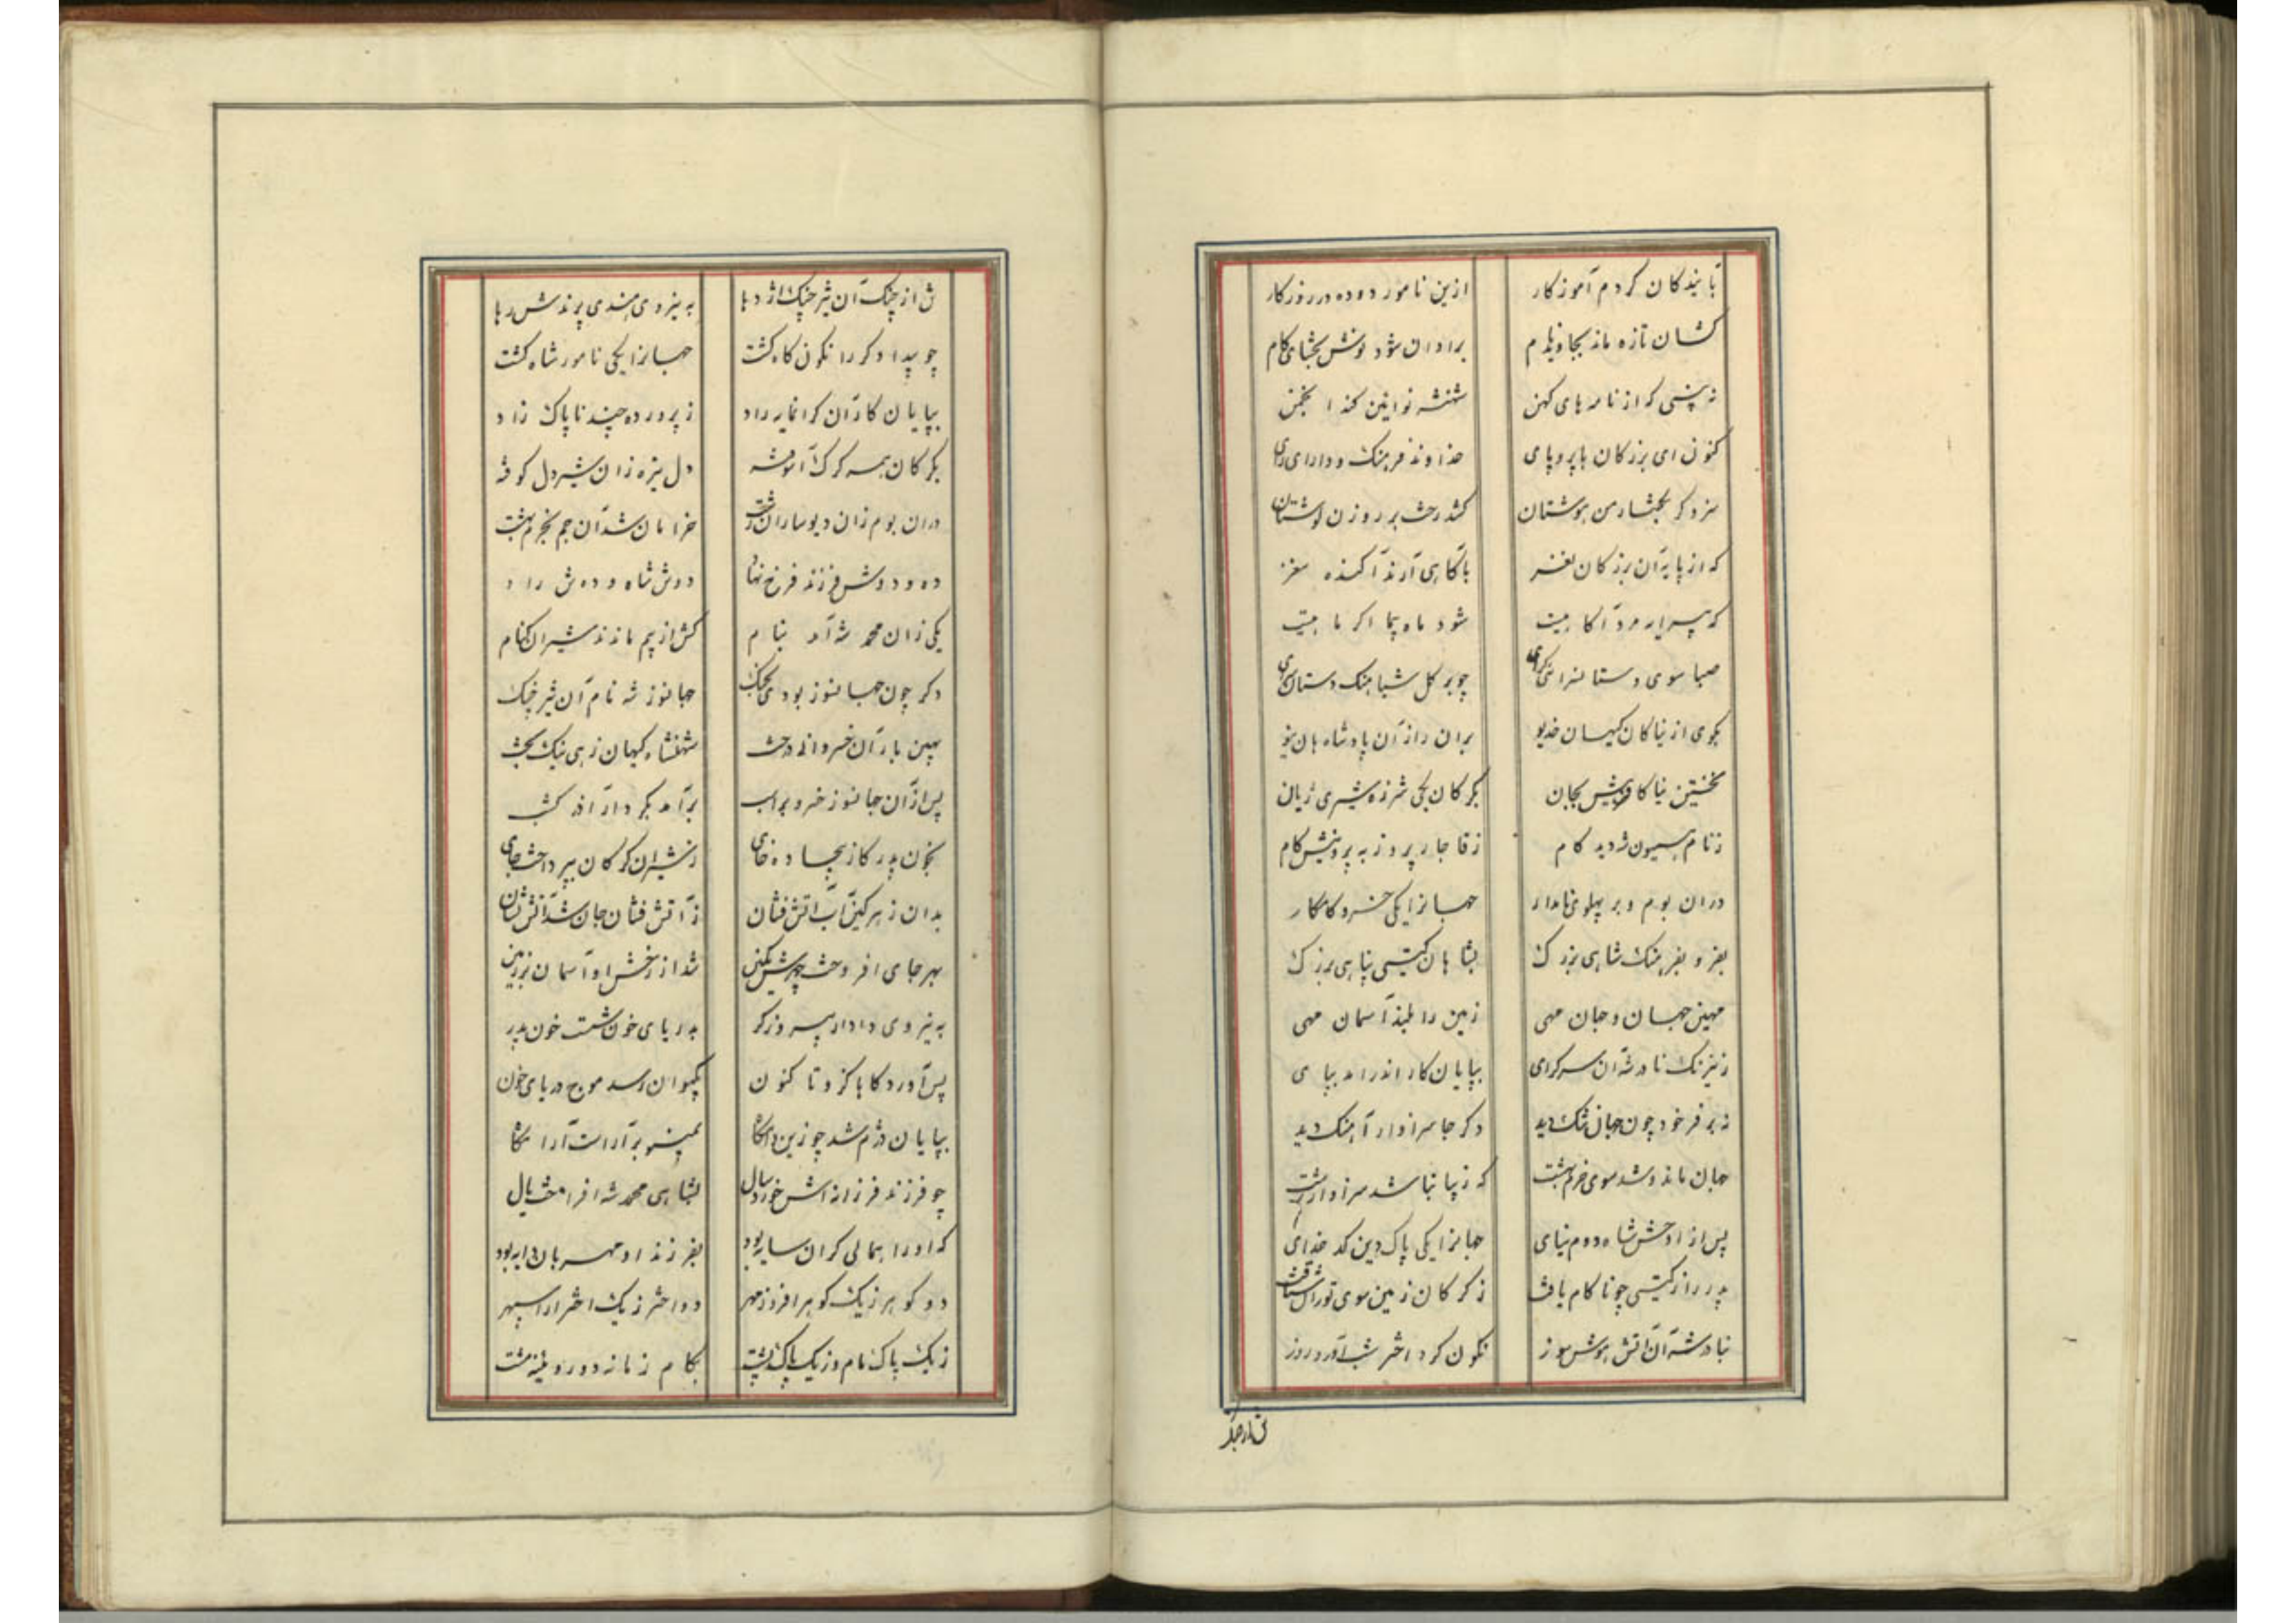 تابندگان کردم آموزگار ازین نامور دوده در روزگار
کشان تازه ماند بجاوید نام برادان شود نوش بخشای کام
نه پنسی که از نامه های کهن شهنشه نوایین کند انجمن
کنون ای بزرکان با پر و پای خداوند فرهنک و دارای رای
سزد کر بخشار من بوستان کشد رخت بر روزن
که از پایه آن بزرکان نغز باکاهی آرند آکنده مغز
که پیرایه مرد آکاهیست شود ماه پیما اکر ماهیست
صبا سوی دستانسرای چو بر کل شباهنک دستان سرای
بکوی از نیاکان کیهان خدیو بران راز آن پادشاهان نیو
نخستین نیا کافرینش بجان بکرکان یکی شرزه شیری ژیان
ز نام همیون کام ز قاجار پیروز به پروینش کام
دران بوم و بر پهلوی نامدار جهانرا یکی خسرو کامکار
بفر و بفرهنک شاهی بزرک بشاهان کیتی پناهی بزرک
مهین جهان و جان مهی زمین را بلند آسمان مهی
ز نیرنک نادر شه آن سرکرای بپایان کار اندر آمد بپای
نه بر فر خود چون جهان تنک دید دکر جا سزاوار آهنک دید
جهان ماند و شد سوی خرم بهشت که زیبا نباشد سزاوار زشت
پس از او خش شاه دوم نیای جهانرا یکی پاک دین کدخدای
پدر را ز کیتی چو ناکام یافت ز کرکان زمین سوی توران شتافت
بنادر شه آن آتش هوش سوز نکون کرد اختر شب آورد روز
ش از چنک
ش از چنک آن شیر چنک اژدها به نیروی هندی پرندش رها
چو بیدادکر را نکون کاه کشت جهانرا یکی نامور شاه کشت
بپایان کار آن کرانمایه راد ز پرورده چند ناپاک زاد
بکرکان همه کرک آموخته دل نیزه زان شیردل کوفته
دران بوم زان دیوساران زشت خرامان شد آن جم بخرم بهشت
ده و دو دش فرزند فرخ نهاد دوش شاه و ده ش راد
یکی زان محمد شه آمد بنام کش از بیم ماندند شیران کنام
دکر چون جهانسوز بودی بجنک جهانسوز شه نام آن شیر چنک
بهین بار آن خسروانه درخت شهنشاه کیهان زهی نیک بخت
پس از آن جهانسوز خسرو براسب برآمد بکردار آذر کشسب
بخون پدر کاز بیجاده خای ز شیران کرکان بپرداخت جای
بدان زهر کین آب آتش فشان ز آتش فشان جان شد آتش نشان
بهر جای افروخت چهرش بکین شد از رخش او آسمان بر زمین
به نیروی دادار پیروزکر بدریای خون شست خون پدر
پس آورد کاها کزو تا کنون بکیوان رسد موج دریای خون
بپایان دژم شد چو زین دامکاه بمینو برآراست آرامکاه
چو فرزند فرزانه اش خورد سال بشاهی محمد شه افراخت یال
که او را همالی کران سایه بود بفرزند او مهربان دایه بود
دو کوهر ز یک کوهر افروز مهر دو اختر ز یک اختر آرا سپهر
ز یک پاک نام و ز یک پاک پشت بکام زمانه دو رویینه مشت